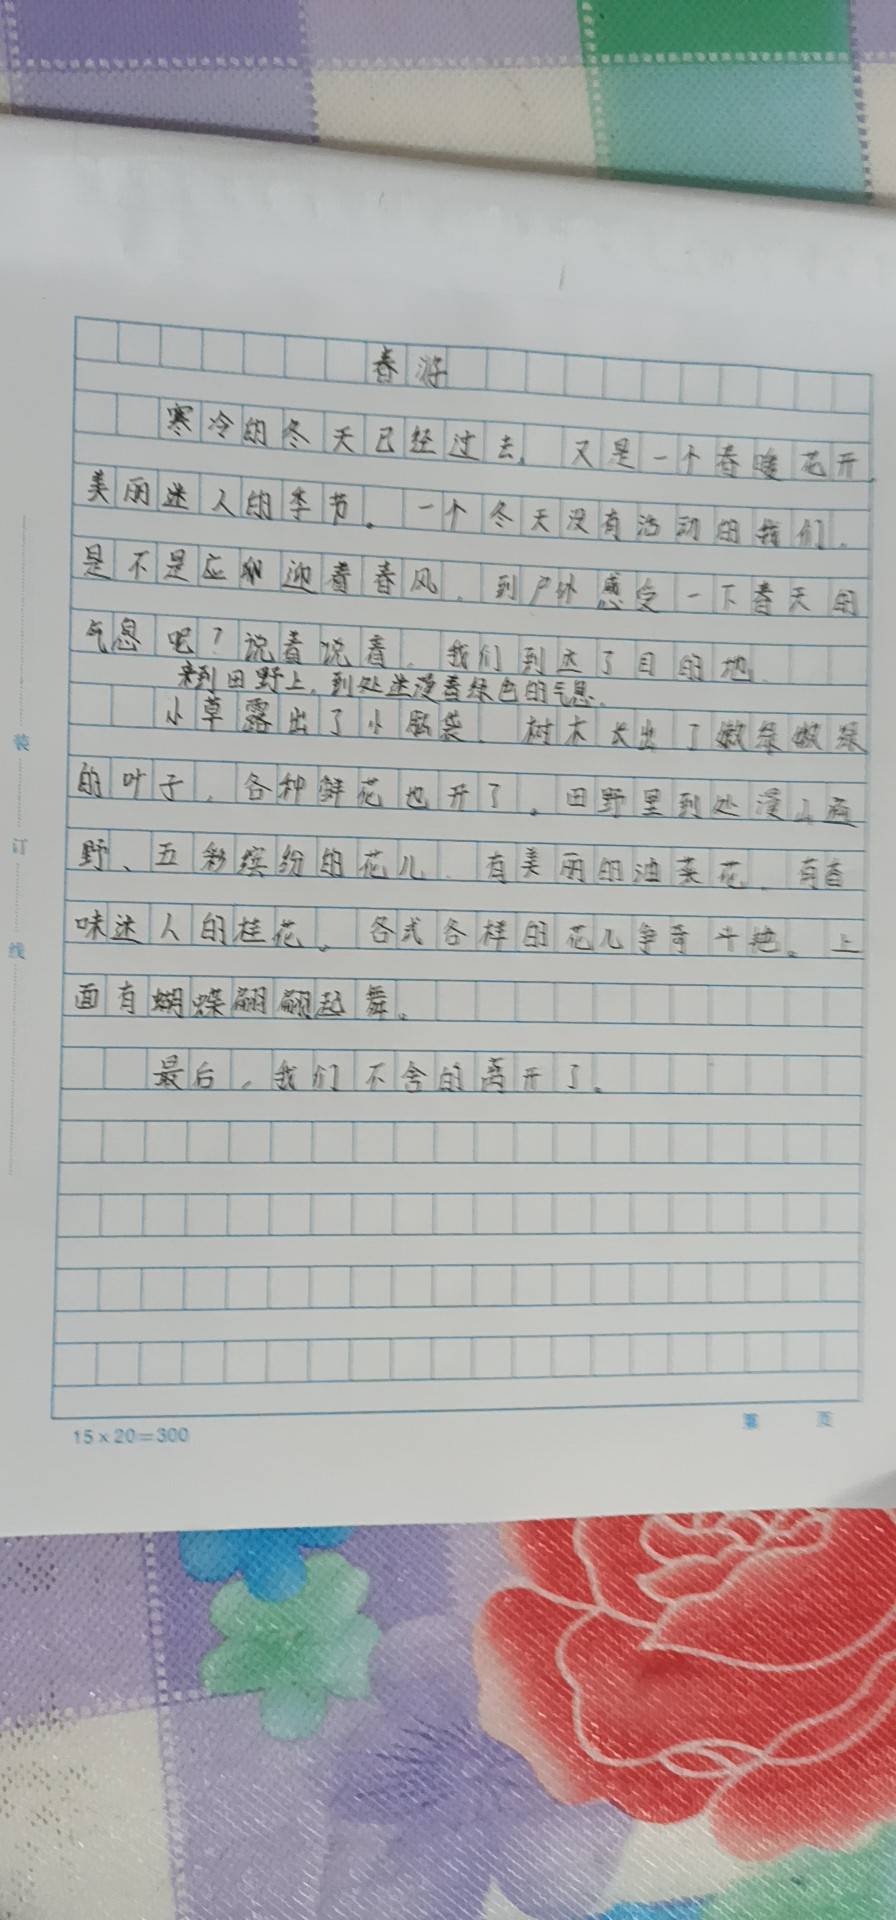 春游
寒冷的冬天已经过去，又是一个春暖花开，
美丽迷人的季节。一个冬天没有活动的我们，
是不是应 迎着春风，到户外感受一下春天的
气息吧？说着说着，我们到达了目的地。
来到田野上，到处迷漫着绿色的气息。
小草露出了小脑袋，树木长出了嫩绿嫩绿
的叶子，各种鲜花也开了。田野里到处漫山遍
野、五彩缤纷的花儿，有美丽的油菜花，有香
味迷人的桂花。各式各样的花儿争奇斗艳。上
面有蝴蝶翩翩起舞。
最后，我们不舍的离开了。
15×20=300
第 页
装
订
线